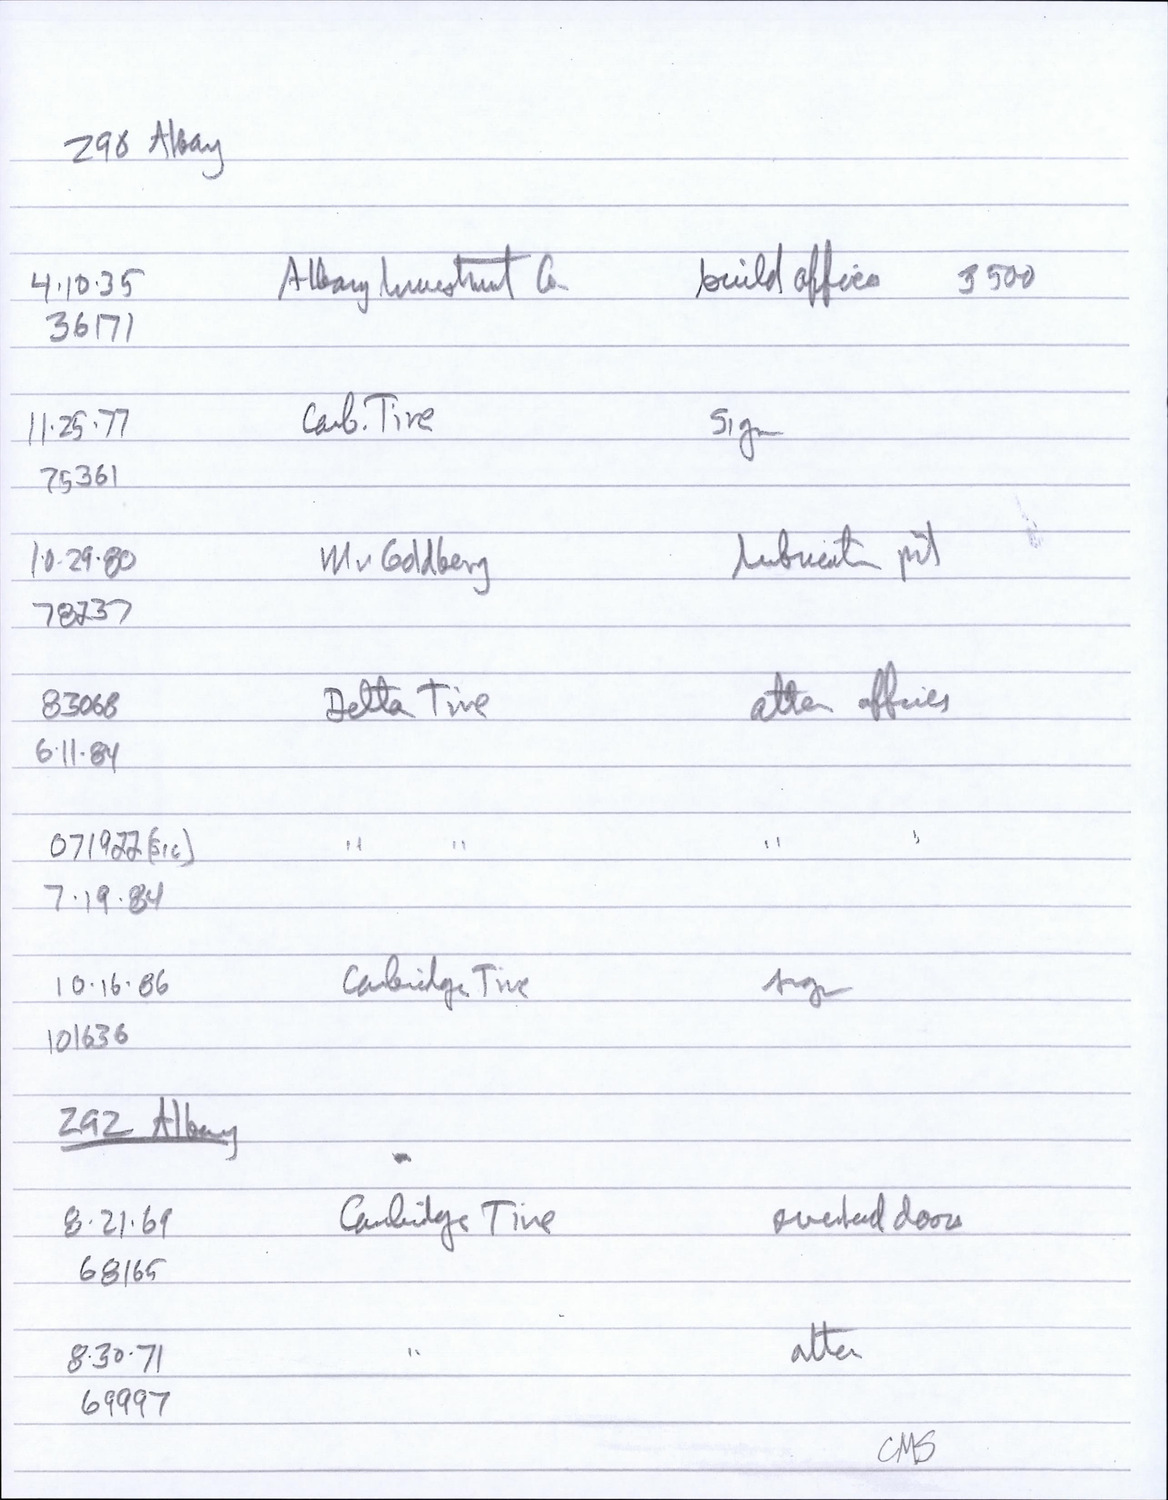 298 Albany
4.10.35 Albany Investment Co build offices $500
36171
11.25.77 Camb. Tire Sign
75361
10.29.80 Mr Goldberg lubricatn pit
78237
83068 Delta Tire alter offices
6.11.84
071922 (sic) " " " "
7.19.84
10.16.86 Cambridge Tire sign
101636
292 Albany
8.21.69 Cambridge Tire overhead doors
68165
8.30.71 " alter
69997
CMS